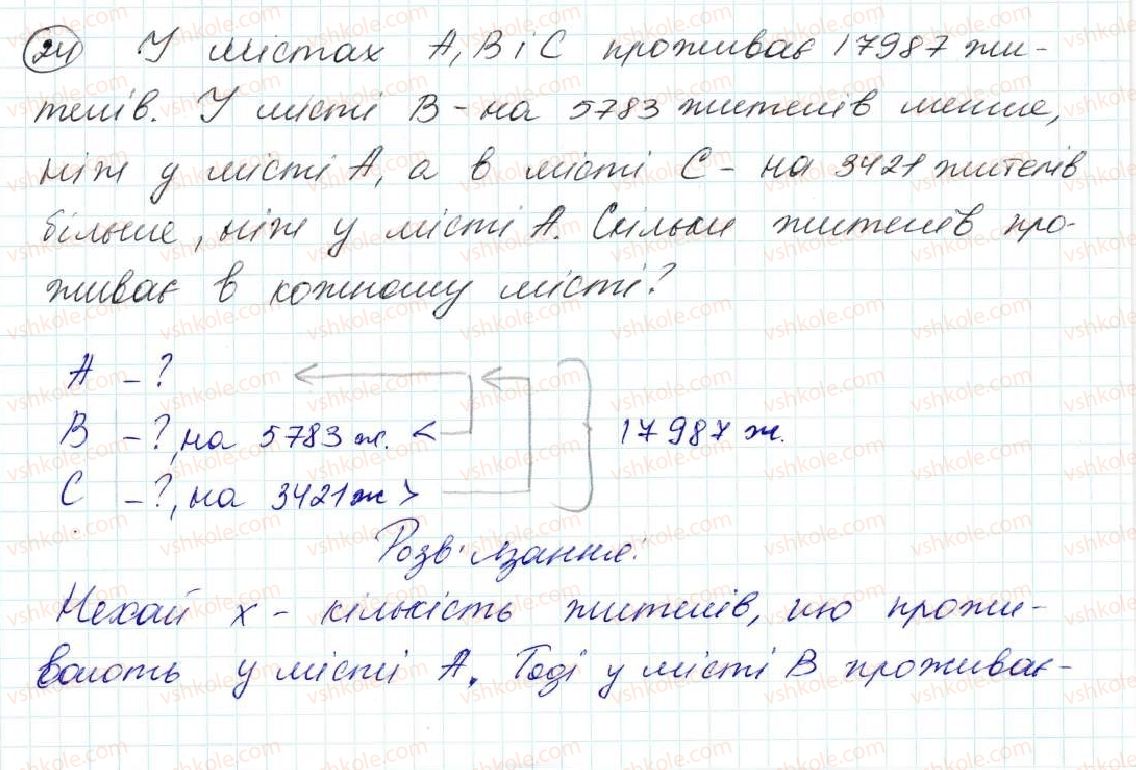 24 У містах А, В і С проживає 17987 жи-
телів. У місті В - на 5783 жителів менше,
ніж у місті А, а в місті С - на 3421 жителів
більше, ніж у місті А. Скільки жителів про-
живає в кожному місті?
А - ?
В - ?, на 5783 ж. <
17987 ж.
С - ?, на 3421 ж >
Розв'язання:
Нехай х - кількість жителів, що прожи-
вають у місті А. Тоді у місті В проживає-